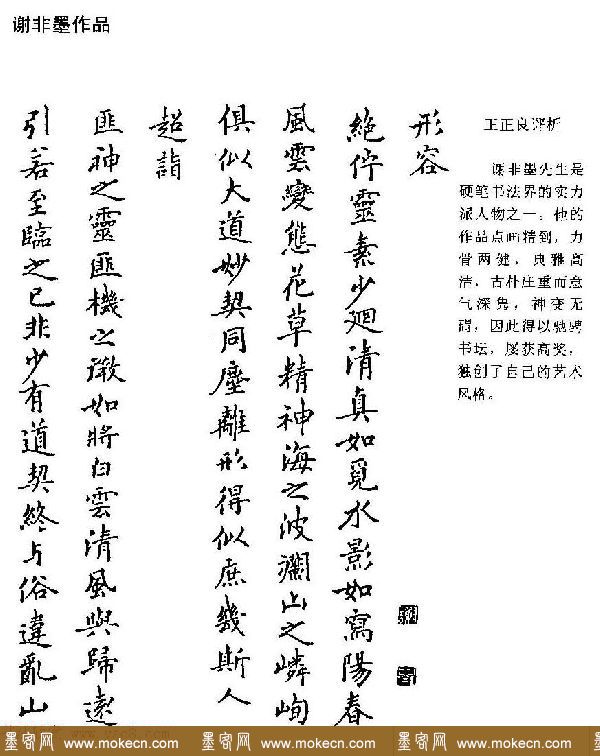 谢非墨作品
王正良评析
谢非墨先生是
硬笔书法界的实力
派人物之一。他的
作品点画精到，力
骨两健，典雅高
洁，古朴庄重而意
气深隽，神变无
碍，因此得以驰骋
书坛，屡获高奖，
独创了自己的艺术
风格。
形容
絶佇靈素少迴清真如覓水影如寫陽春
風雲變態花草精神海之波瀾山之嶙峋
俱似大道妙契同塵離形得似庶幾斯人
超詣
匪神之靈匪機之微如將白雲清風與歸遠
引若至臨之已非少有道契終与俗違亂山
墨客网 www.mokecn.com 墨客网 www.mokecn.com 墨客网 www.mokecn.com